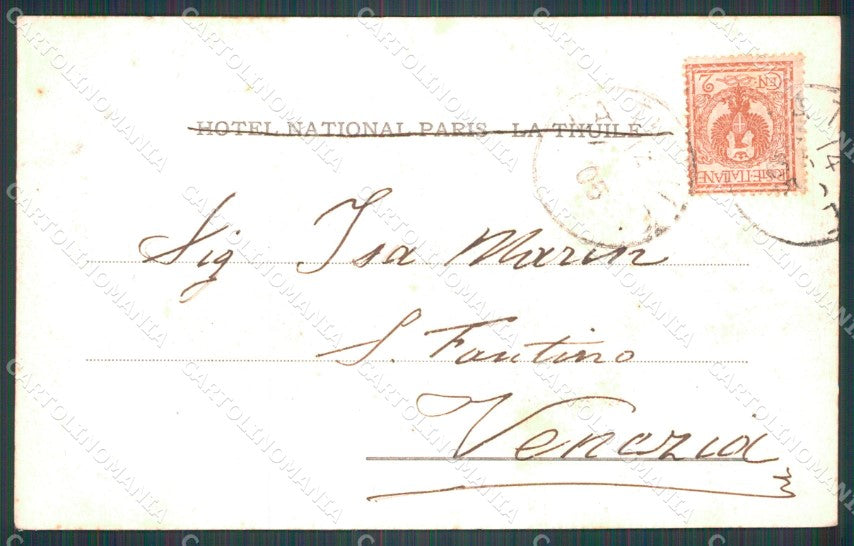 HOTEL NATIONAL PARIS - LA THUILE
CEN 2
POSTE ITALIANE
05
14
Sig Isa Marin
S. Fantino
Venezia
CARTOLINOMANIA